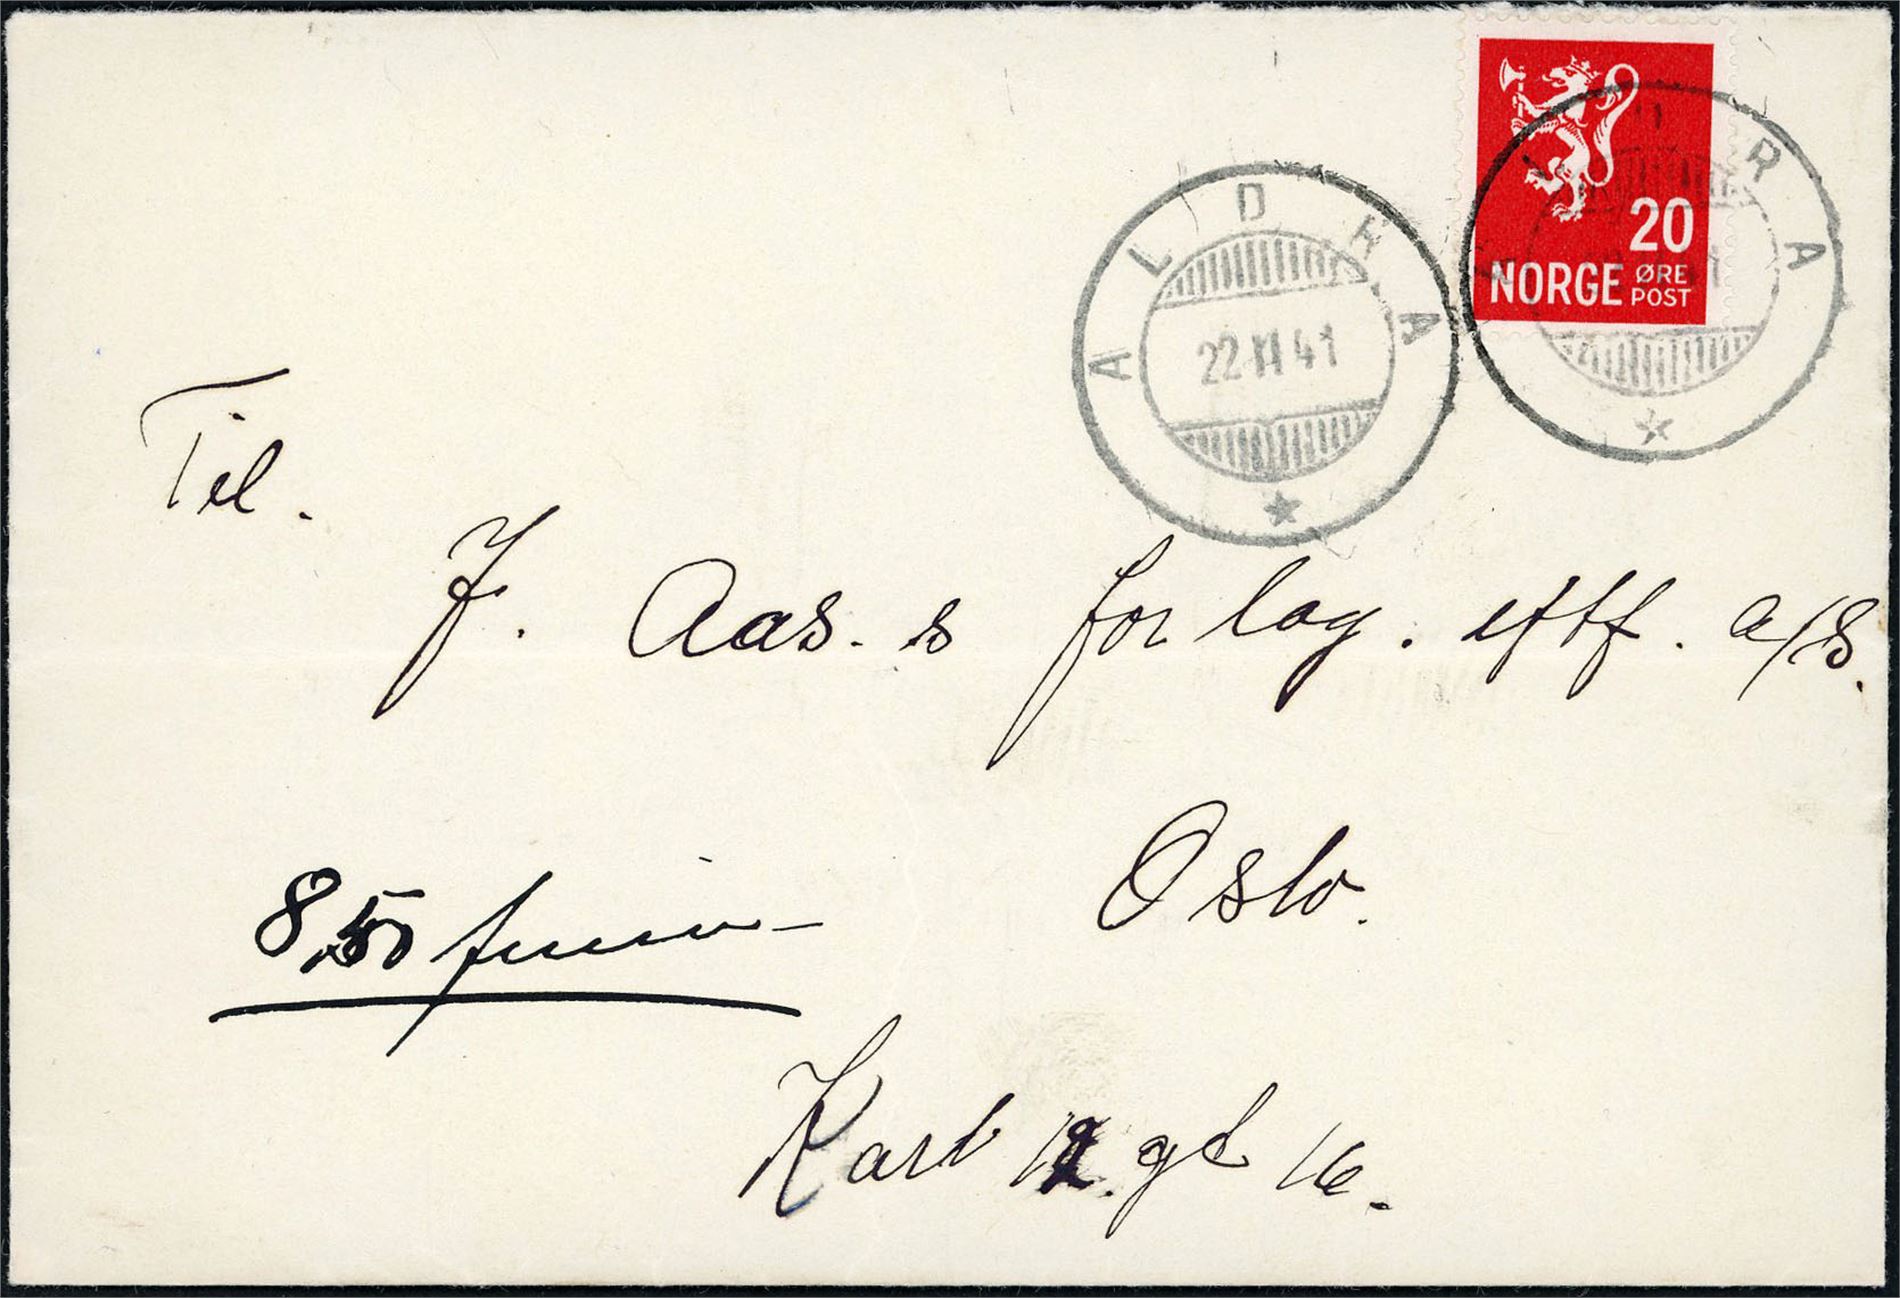 20
NORGE ØRE
POST
ALDRA
22 VI 41
RA
Til.
J. Aas. s forlag. eftf. a/s.
Oslo.
8,50
Karl 12. gt 16.